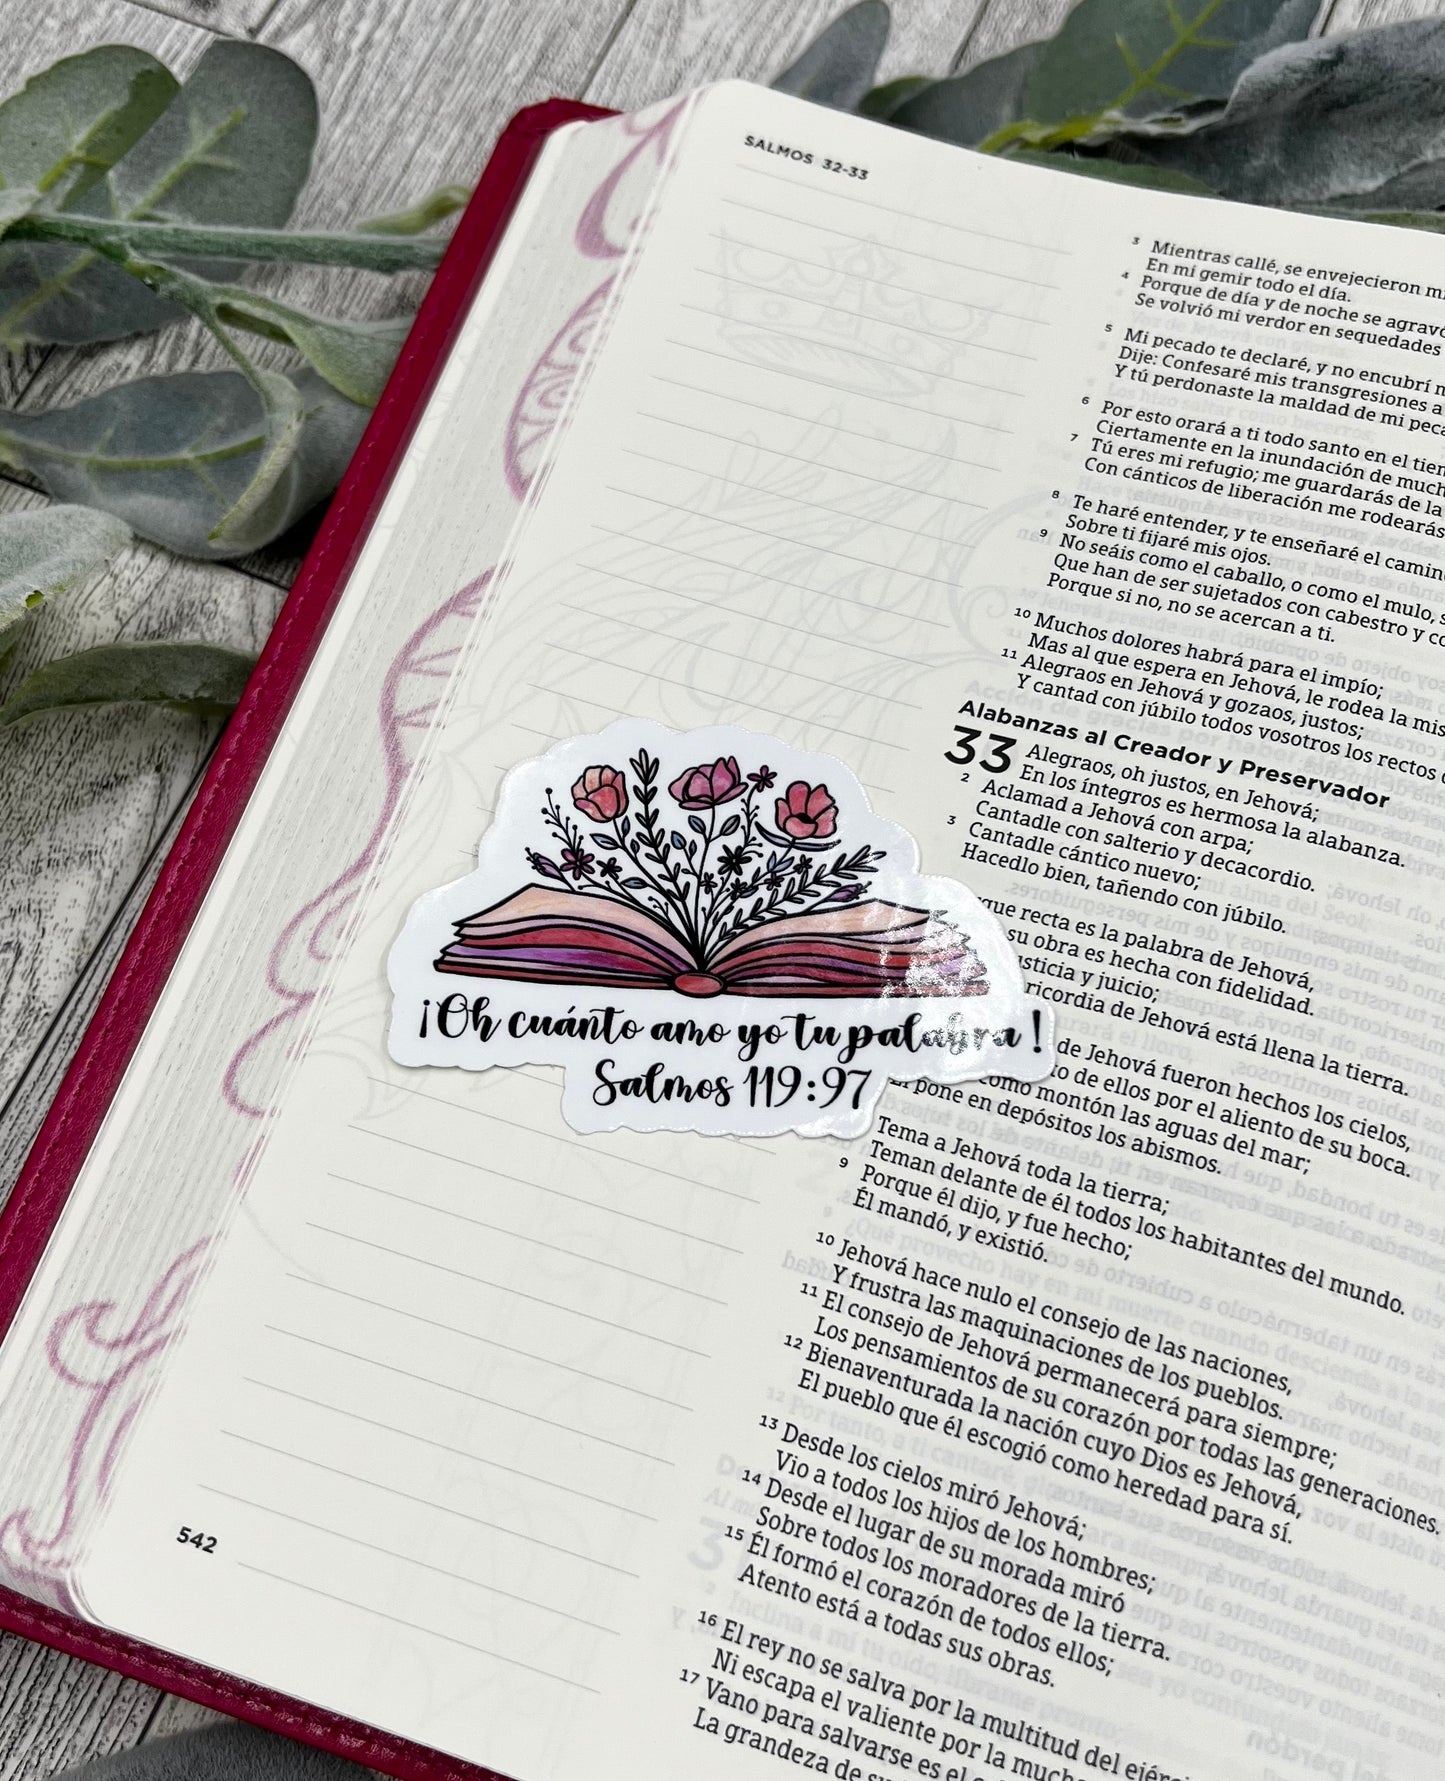 SALMOS 32-33
3 Mientras callé, se envejecieron
En mi gemir todo el día.
4 Porque de día y de noche se agravó
Se volvió mi verdor en sequedades
5 Mi pecado te declaré, y no encubrí
Dije: Confesaré mis transgresiones a
Y tú perdonaste la maldad de mi
6 Por esto orará a ti todo santo en el
Ciertamente en la inundación de
7 Tú eres mi refugio; me guardarás de la
Con cánticos de liberación me rodearás
8 Te haré entender, y te enseñaré el
Sobre ti fijaré mis ojos.
9 No seáis como el caballo, o como el mulo,
Que han de ser sujetados con cabestro y
Porque si no, no se acercan a ti.
10 Muchos dolores habrá para el impío;
Mas al que espera en Jehová, le rodea la
11 Alegraos en Jehová y gozaos, justos;
Y cantad con júbilo todos vosotros los rectos
Alabanzas al Creador y Preservador
33 Alegraos, oh justos, en Jehová;
En los íntegros es hermosa la alabanza.
2 Aclamad a Jehová con arpa;
Cantadle con salterio y decacordio.
3 Cantadle cántico nuevo;
Hacedlo bien, tañendo con júbilo.
recta es la palabra de Jehová,
su obra es hecha con fidelidad.
y juicio;
de Jehová está llena la tierra.
de Jehová fueron hechos los cielos,
de ellos por el aliento de su boca.
como montón las aguas del mar;
pone en depósitos los abismos.
Tema a Jehová toda la tierra;
Teman delante de él todos los habitantes del mundo.
9 Porque él dijo, y fue hecho;
Él mandó, y existió.
10 Jehová hace nulo el consejo de las naciones,
Y frustra las maquinaciones de los pueblos.
11 El consejo de Jehová permanecerá para siempre;
Los pensamientos de su corazón por todas las generaciones.
12 Bienaventurada la nación cuyo Dios es Jehová,
El pueblo que él escogió como heredad para sí.
13 Desde los cielos miró Jehová;
Vio a todos los hijos de los hombres;
14 Desde el lugar de su morada miró
Sobre todos los moradores de la tierra.
15 Él formó el corazón de todos ellos;
Atento está a todas sus obras.
16 El rey no se salva por la multitud del
Ni escapa el valiente por la
17 Vano para salvarse es el
La grandeza de
¡Oh cuánto amo yo tu palabra!
Salmos 119:97
542